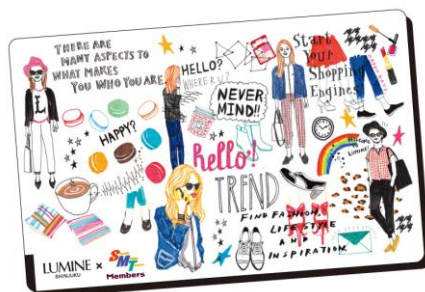 THERE ARE
MANY ASPECTS TO
WHAT MAKES
YOU WHO YOU ARE
HELLO?
WHERE R U?
NEVER
MIND!!
Start
Your
Shopping
Engines
HAPPY?
hello!
TREND
WELCOME
TO
LUMINE!
FIND FASHION,
LIFE STYLE
AND
INSPIRATION
LUMINE
SHINJUKU
×
SMT
Members